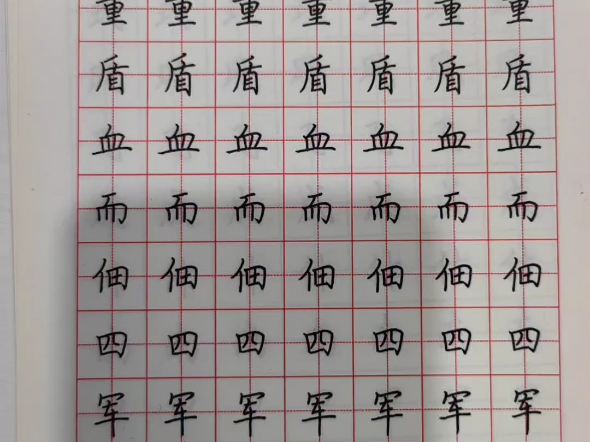 重重重重重重重
盾盾盾盾盾盾盾
血血血血血血血
而而而而而而而
佃佃佃佃佃佃佃
四四四四四四四
军军军军军军军